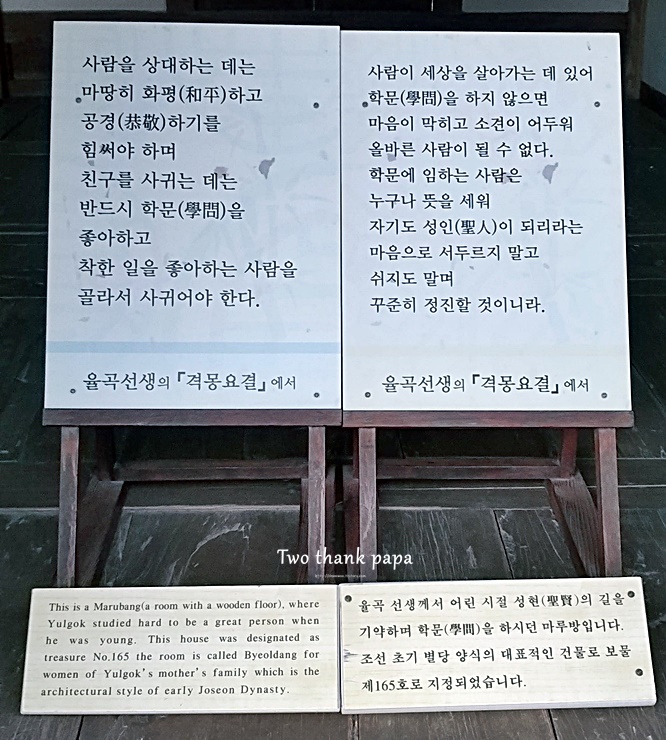 사람을 상대하는 데는
마땅히 화평(和平)하고
공경(恭敬)하기를
힘써야 하며
친구를 사귀는 데는
반드시 학문(學問)을
좋아하고
착한 일을 좋아하는 사람을
골라서 사귀어야 한다.
율곡선생의 『격몽요결』에서
사람이 세상을 살아가는 데 있어
학문(學問)을 하지 않으면
마음이 막히고 소견이 어두워
올바른 사람이 될 수 없다.
학문에 임하는 사람은
누구나 뜻을 세워
자기도 성인(聖人)이 되리라는
마음으로 서두르지 말고
쉬지도 말며
꾸준히 정진할 것이니라.
율곡선생의 『격몽요결』에서
Two thank papa
This is a Marubang(a room with a wooden floor), where
Yulgok studied hard to be a great person when
he was young. This house was designated as
treasure No.165 the room is called Byeoldang for
women of Yulgok's mother's family which is the
architectural style of early Joseon Dynasty.
율곡 선생께서 어린 시절 성현(聖賢)의 길을
기약하며 학문(學問)을 하시던 마루방입니다.
조선 초기 별당 양식의 대표적인 건물로 보물
제165호로 지정되었습니다.